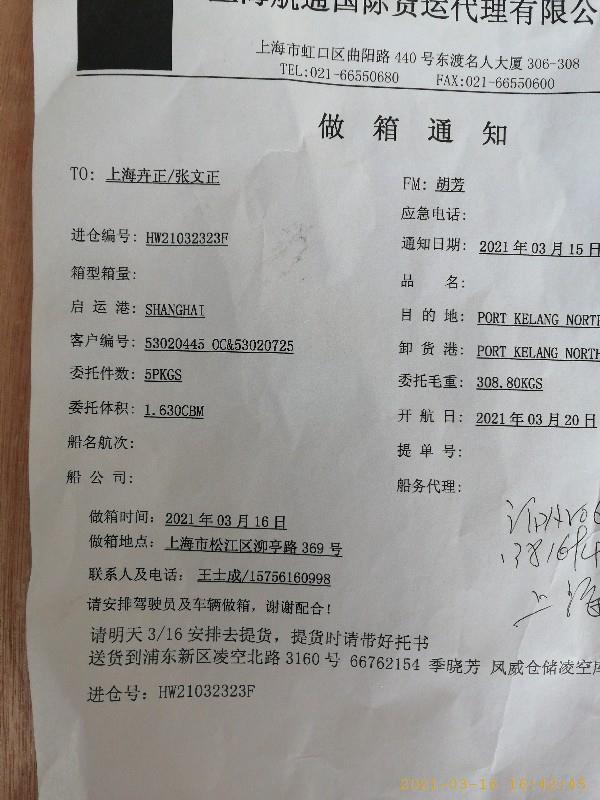 上海航通国际货运代理有限公
上海市虹口区曲阳路 440 号东渡名人大厦 306-308
TEL:021-66550680 FAX:021-66550600
做 箱 通 知
TO: 上海卉正/张文正
FM: 胡芳
应急电话:
进仓编号: HW21032323F
通知日期: 2021 年 03 月 15 日
箱型箱量:
品 名:
启 运 港: SHANGHAI
目 的 地: PORT KELANG NORTH
客户编号: 53020445 OC&53020725
卸 货 港: PORT KELANG NORTH
委托件数: 5PKGS
委托毛重: 308.80KGS
委托体积: 1.630CBM
开 航 日: 2021 年 03 月 20 日
船名航次:
提 单 号:
船 公 司:
船务代理:
做箱时间: 2021 年 03 月 16 日
做箱地点: 上海市松江区泖亭路 369 号
联系人及电话: 王士成/15756160998
请安排驾驶员及车辆做箱，谢谢配合!
请明天 3/16 安排去提货，提货时请带好托书
送货到浦东新区凌空北路 3160 号 66762154 季晓芳 风威仓储凌空库
进仓号: HW21032323F
上海
2021-03-16 16:42:45